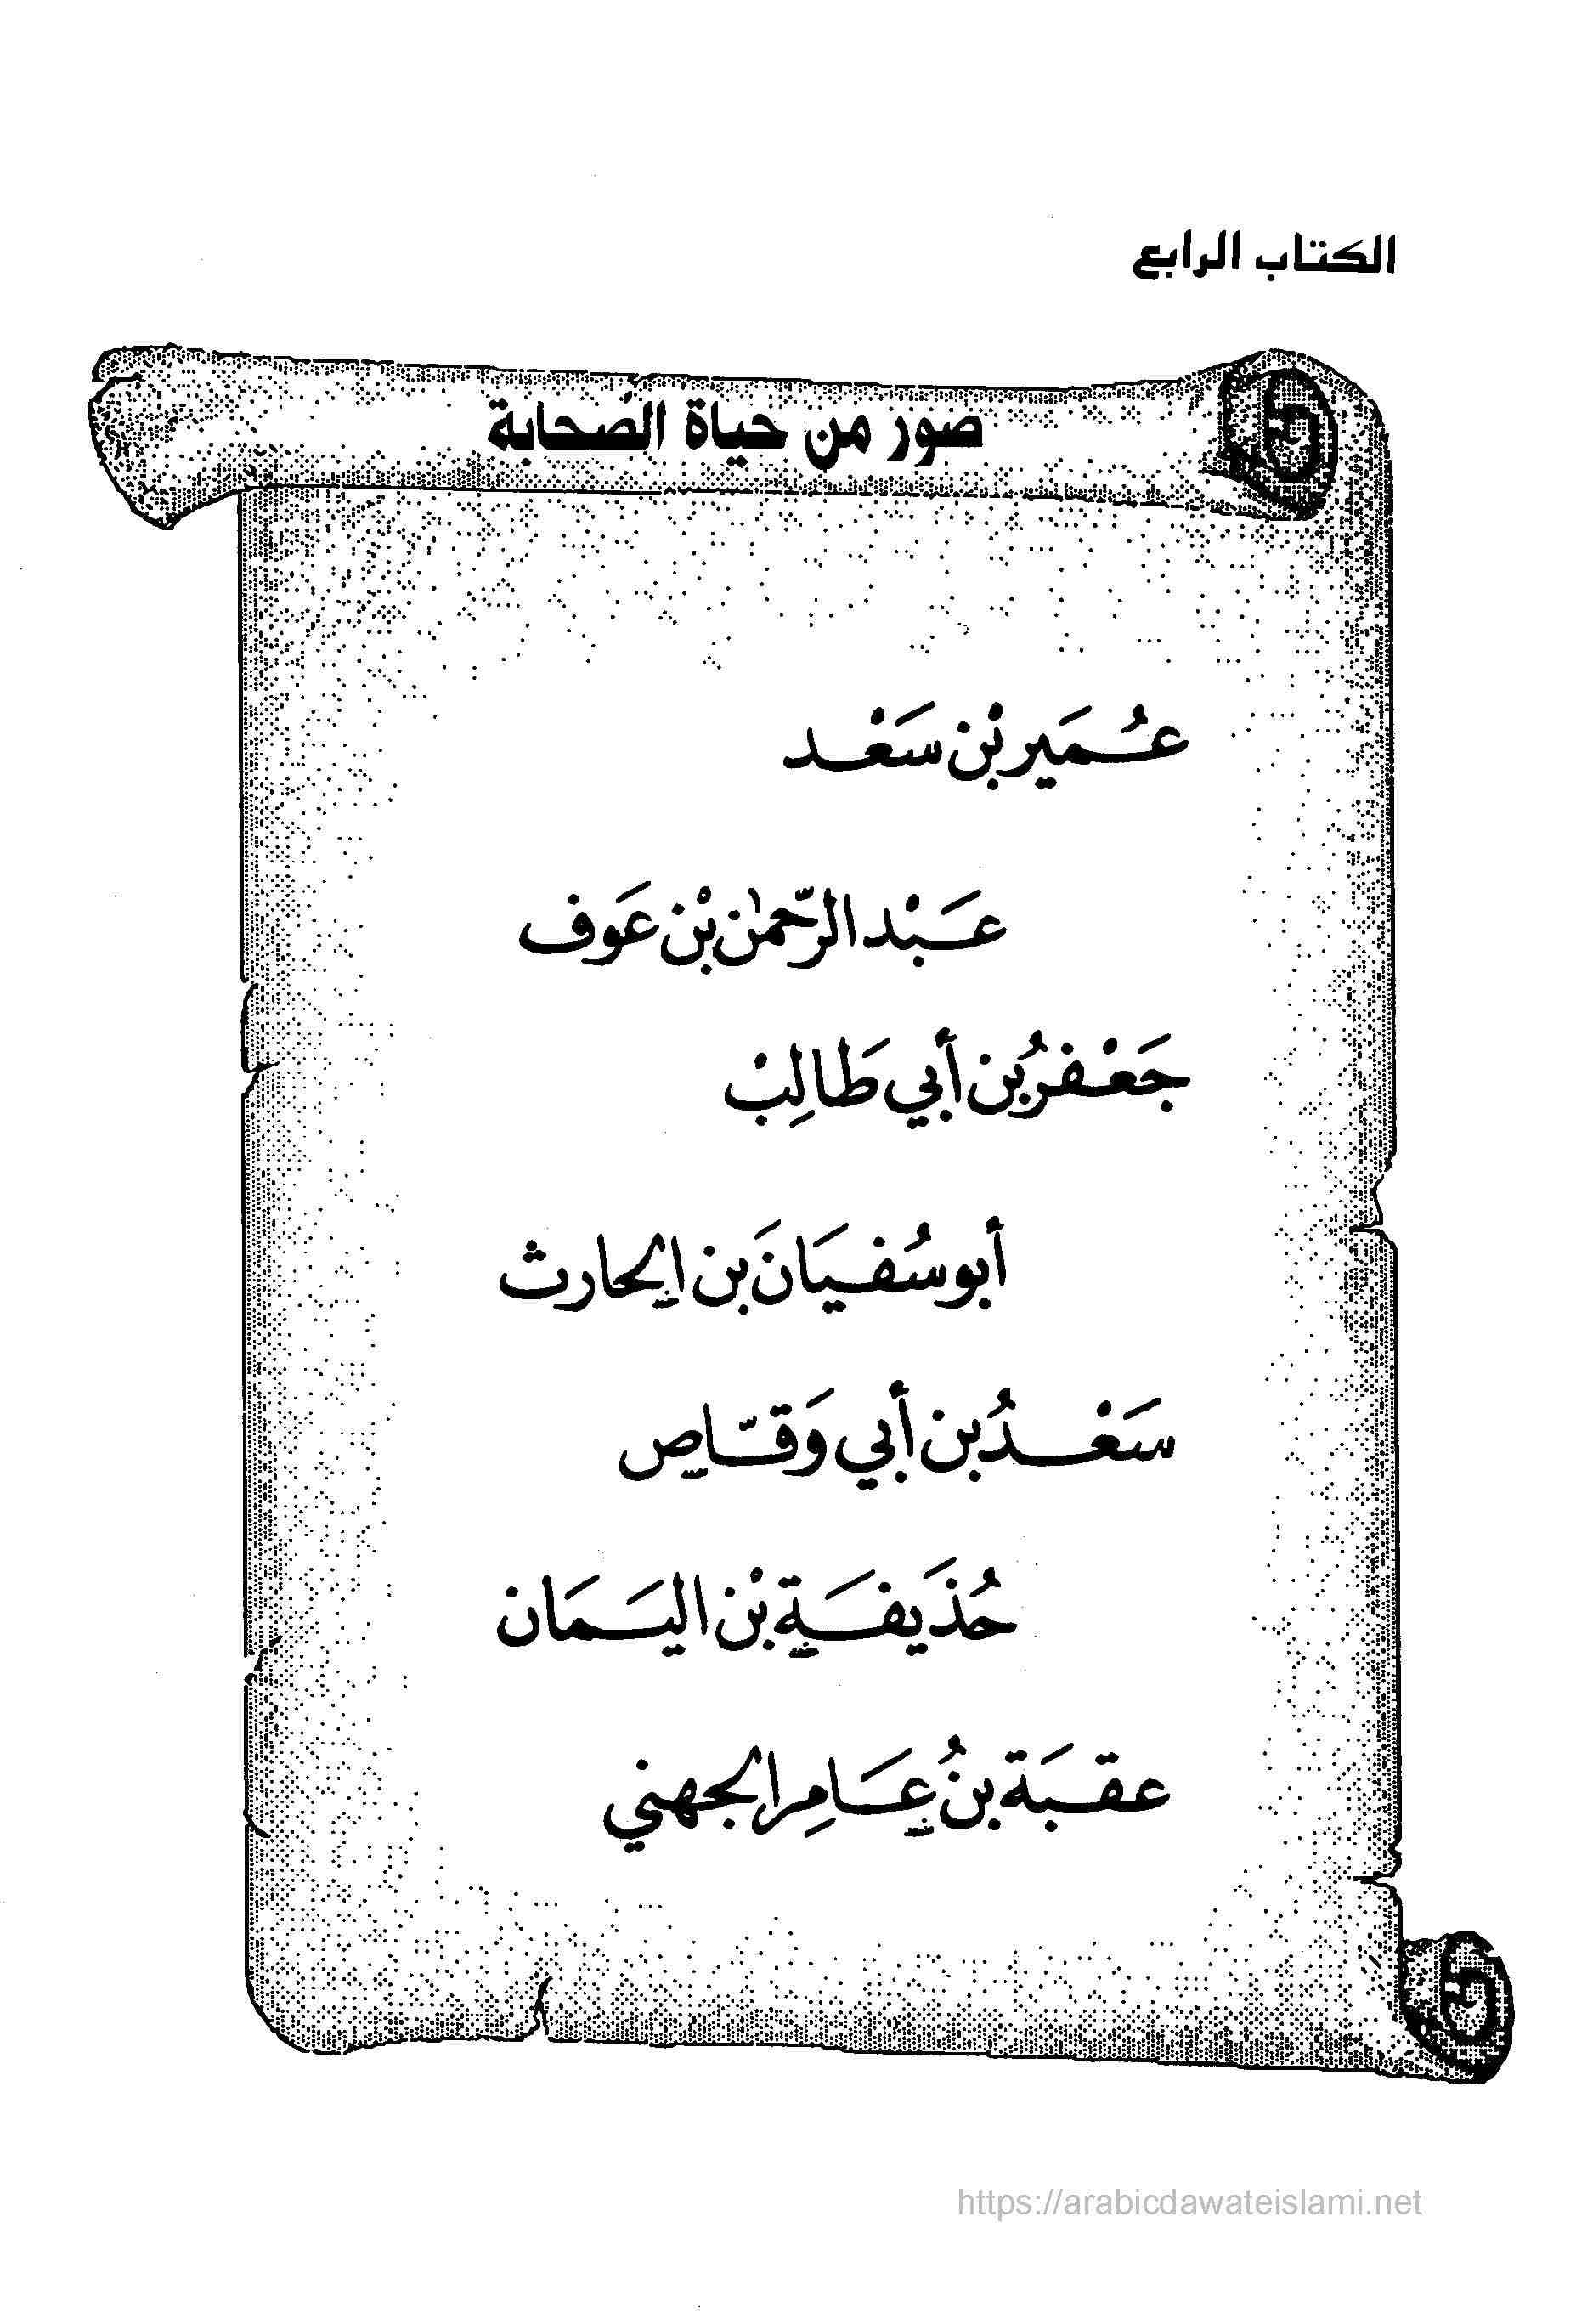 الكتاب الرابع
صور من حياة الصحابة
عُمَير بْن سَعْد
عَبْد الرّحمٰن بْن عَوف
جَعْفرُ بن أبي طَالِبْ
أبو سُفيَانَ بن الحارث
سَعْدُ بن أبي وَقّاص
حُذَيفَة بْن اليَمَان
عقبَة بنُ عَامِر الجهني
https://arabicdawateislami.net